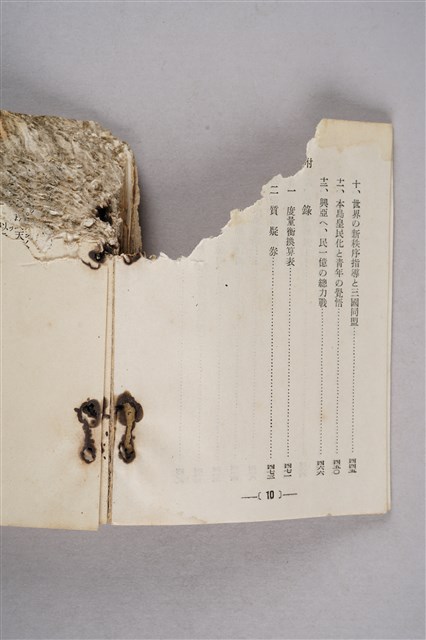 十、世界の新秩序指導と三國同盟…………四四五
十一、本島皇民化と青年の覺悟…………四五〇
十二、興亞へ、民一億の總力戰…………四六六
附錄
一 度量衡換算表…………四七一
二 質疑券…………四七三
—( 10 )—
天